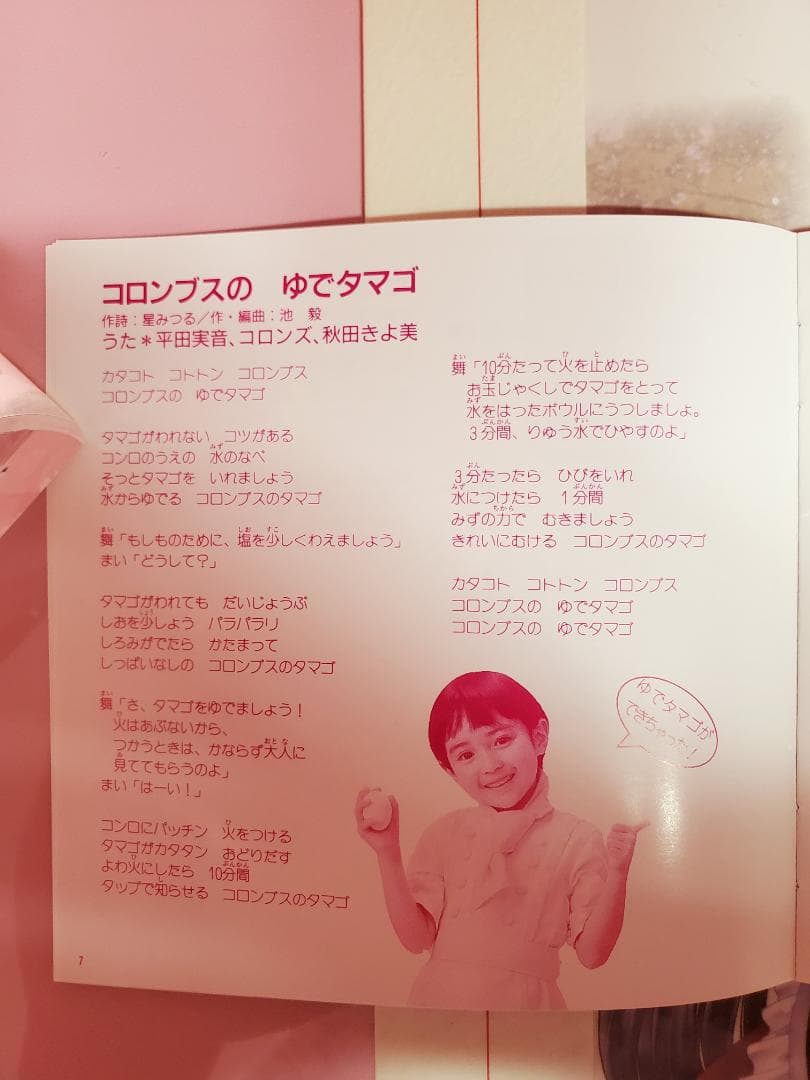 コロンブスの　ゆでタマゴ
作詩：星みつる／作・編曲：池　毅
うた＊平田実音、コロンズ、秋田きよ美
カタコト　コトトン　コロンブス
コロンブスの　ゆでタマゴ
タマゴがわれない　コツがある
コンロのうえの　水のなべ
そっとタマゴを　いれましょう
水からゆでる　コロンブスのタマゴ
舞「もしものために、塩を少しくわえましょう」
まい「どうして？」
タマゴがわれても　だいじょうぶ
しおを少しよう　パラパラリ
しろみがでたら　かたまって
しっぱいなしの　コロンブスのタマゴ
舞「さ、タマゴをゆでましょう！
火はあぶないから、
つかうときは、かならず大人に
見ててもらうのよ」
まい「はーい！」
コンロにパッチン　火をつける
タマゴがカタタン　おどりだす
よわ火にしたら　10分間
タップで知らせる　コロンブスのタマゴ
舞「10分たって火を止めたら
お玉じゃくしでタマゴをとって
水をはったボウルにうつしましょ。
3分間、りゅう水でひやすのよ」
3分たったら　ひびをいれ
水につけたら　1分間
みずの力で　むきましょう
きれいにむける　コロンブスのタマゴ
カタコト　コトトン　コロンブス
コロンブスの　ゆでタマゴ
コロンブスの　ゆでタマゴ
ゆでタマゴが
できちゃった！
7